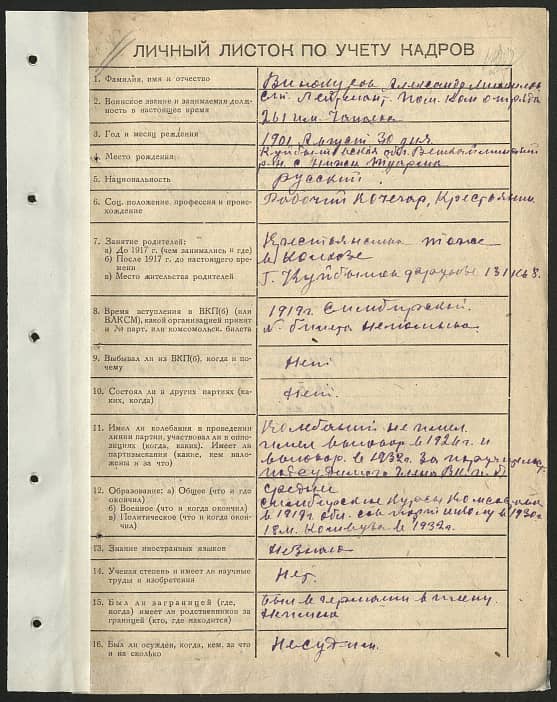 ЛИЧНЫЙ ЛИСТОК ПО УЧЕТУ КАДРОВ
1. Фамилия, имя и отчество
Винокуров Александр
2. Воинское звание и занимаемая долж-
ность в настоящее время
Ст. Лейтенант. Пом. Ком отряда
261 им. Чапаева
3. Год и месяц рождения
1901 Август 30 дня
4. Место рождения
Куйбышевская обл.
р-н. с.
5. Национальность
русский.
6. Соц. положение, профессия и проис-
хождение
Рабочий Кочегар, Крестьянин
7. Занятие родителей:
а) До 1917 г. (чем занимались и где)
б) После 1917 г. до настоящего вре-
мени
в) Место жительства родителей
Крестьянами тоже
в Колхозе
Г. Куйбышев 131 кв 8.
8. Время вступления в ВКП(б) (или
ВЛКСМ), какой организацией принят
и № парт. или комсомольск. билета
1919 г. Симбирской.
N. билета не помню.
9. Выбывал ли из ВКП(б), когда и по-
чему
Нет
10. Состоял ли в других партиях (ка-
ких, когда)
нет.
11. Имел ли колебания в проведении
линии партии, участвовал ли в оппо-
зициях (когда, каких). Имеет ли
партвзыскания (какие, кем нало-
жены и за что)
Колебаний не имел
имел выговор в 192 г. и
выговор. в 1932 г. за
подсудимого члена ВКП.б.
12. Образование: а) Общее (что и где
окончил)
б) Военное (что и когда окончил)
в) Политическое (что и когда окон-
чил)
среднее
Симбирские Курсы Комсостава
в 1919 г. обл. сов партшколу в 1930 г.
в 1932 г.
13. Знание иностранных языков
Незнаю
14. Ученая степень и имеет ли научные
труды и изобретения
Нет.
15. Был ли заграницей (где,
когда) имеет ли родственников за
границей (кто, где находится)
был в Германии в плену.
Неимею
16. Был ли осужден, когда, кем, за что
и на сколько
Несудим.